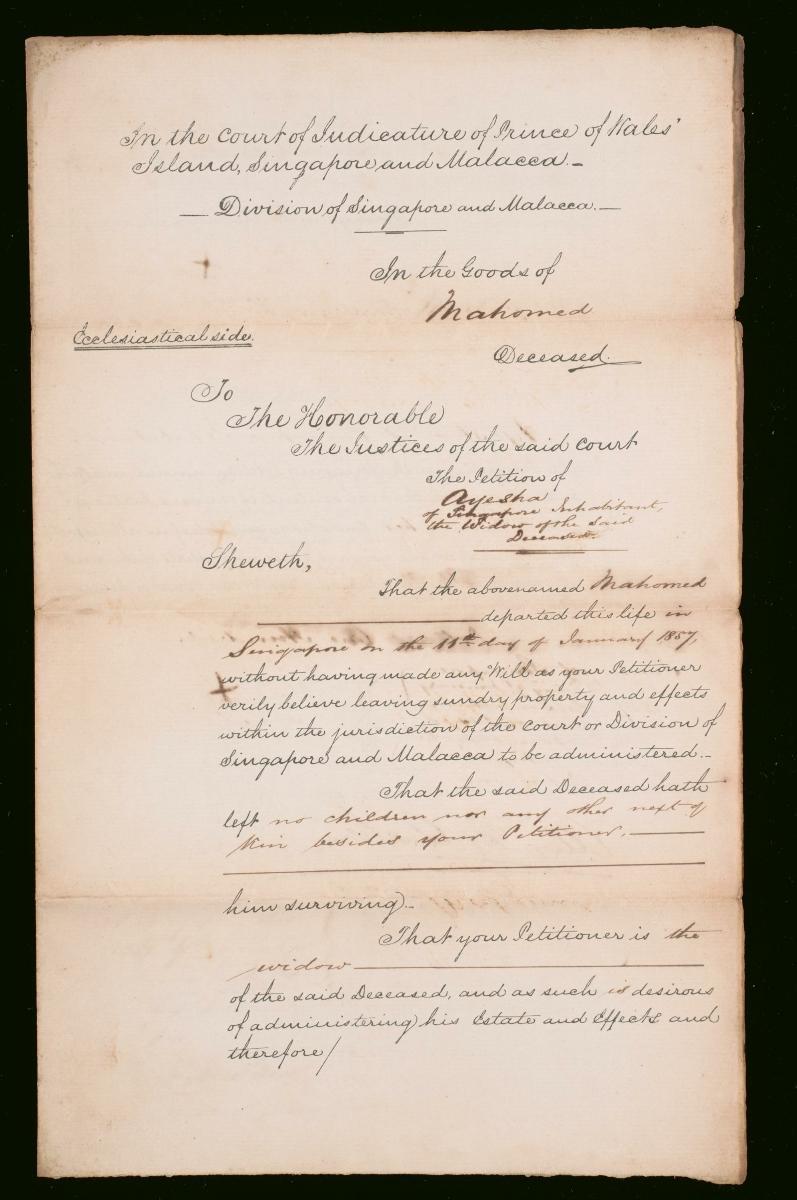 In the Court of Judicature of Prince of Wales'
Island, Singapore and Malacca.-
— Division of Singapore and Malacca. —
In the Goods of
Mahomed
Ecclesiastical side.
Deceased.
To
The Honorable
The Justices of the said Court
The Petition of
Ayesha
of Singapore Inhabitant,
the Widow of the said
Deceased.
Sheweth,
That the abovenamed Mahomed
departed this life in
Singapore on the 11th day of January 1857,
without having made any Will as your Petitioner
verily believe leaving sundry property and effects
within the jurisdiction of the Court or Division of
Singapore and Malacca to be administered.-
That the said Deceased hath
left no children nor any other next of
Kin besides your Petitioner.
him surviving.-
That your Petitioner is the
widow
of the said Deceased, and as such is desirous
of administering his Estate and Effects and
therefore/